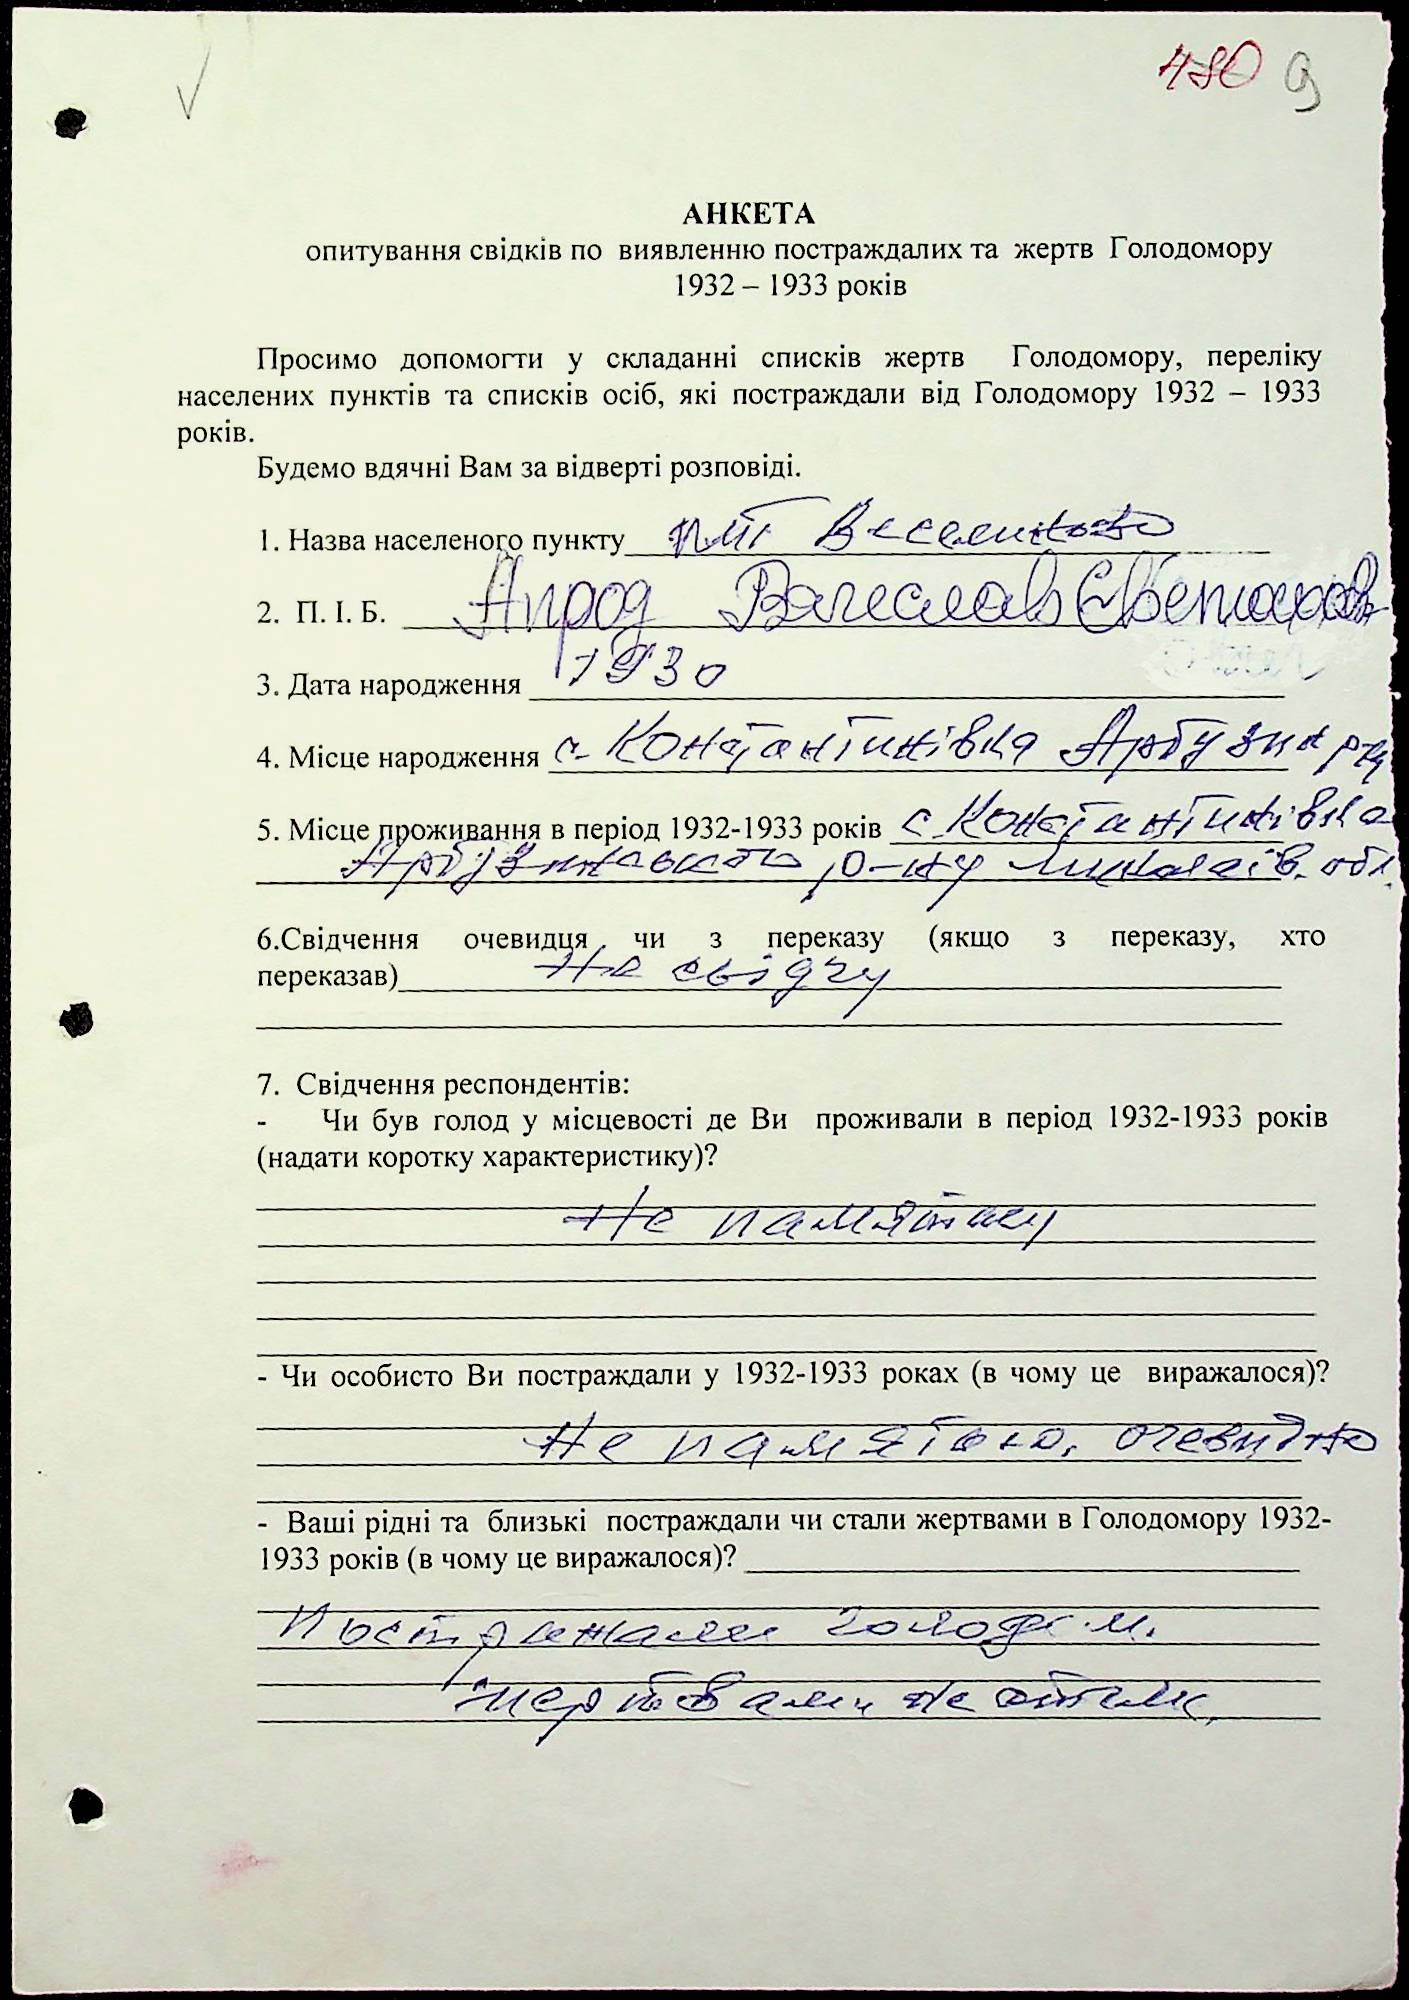 480 9
АНКЕТА
опитування свідків по виявленню постраждалих та жертв Голодомору
1932 – 1933 років
Просимо допомогти у складанні списків жертв Голодомору, переліку
населених пунктів та списків осіб, які постраждали від Голодомору 1932 – 1933
років.
Будемо вдячні Вам за відверті розповіді.
1. Назва населеного пункту пмт Веселиново
2. П. І. Б. Апрод Вячеслав
3. Дата народження 1930
4. Місце народження с. Константинівка Арбузин р-н
5. Місце проживання в період 1932-1933 років с Константинівка
Арбузинського р-ну Миколаїв. обл.
6.Свідчення очевидця чи з переказу (якщо з переказу, хто
переказав) Не свідчу
7. Свідчення респондентів:
- Чи був голод у місцевості де Ви проживали в період 1932-1933 років
(надати коротку характеристику)?
Не памятаю
- Чи особисто Ви постраждали у 1932-1933 роках (в чому це виражалося)?
Не памятаю, очевидно
- Ваші рідні та близькі постраждали чи стали жертвами в Голодомору 1932-
1933 років (в чому це виражалося)?
Постражали голодом.
жертвами не стали.